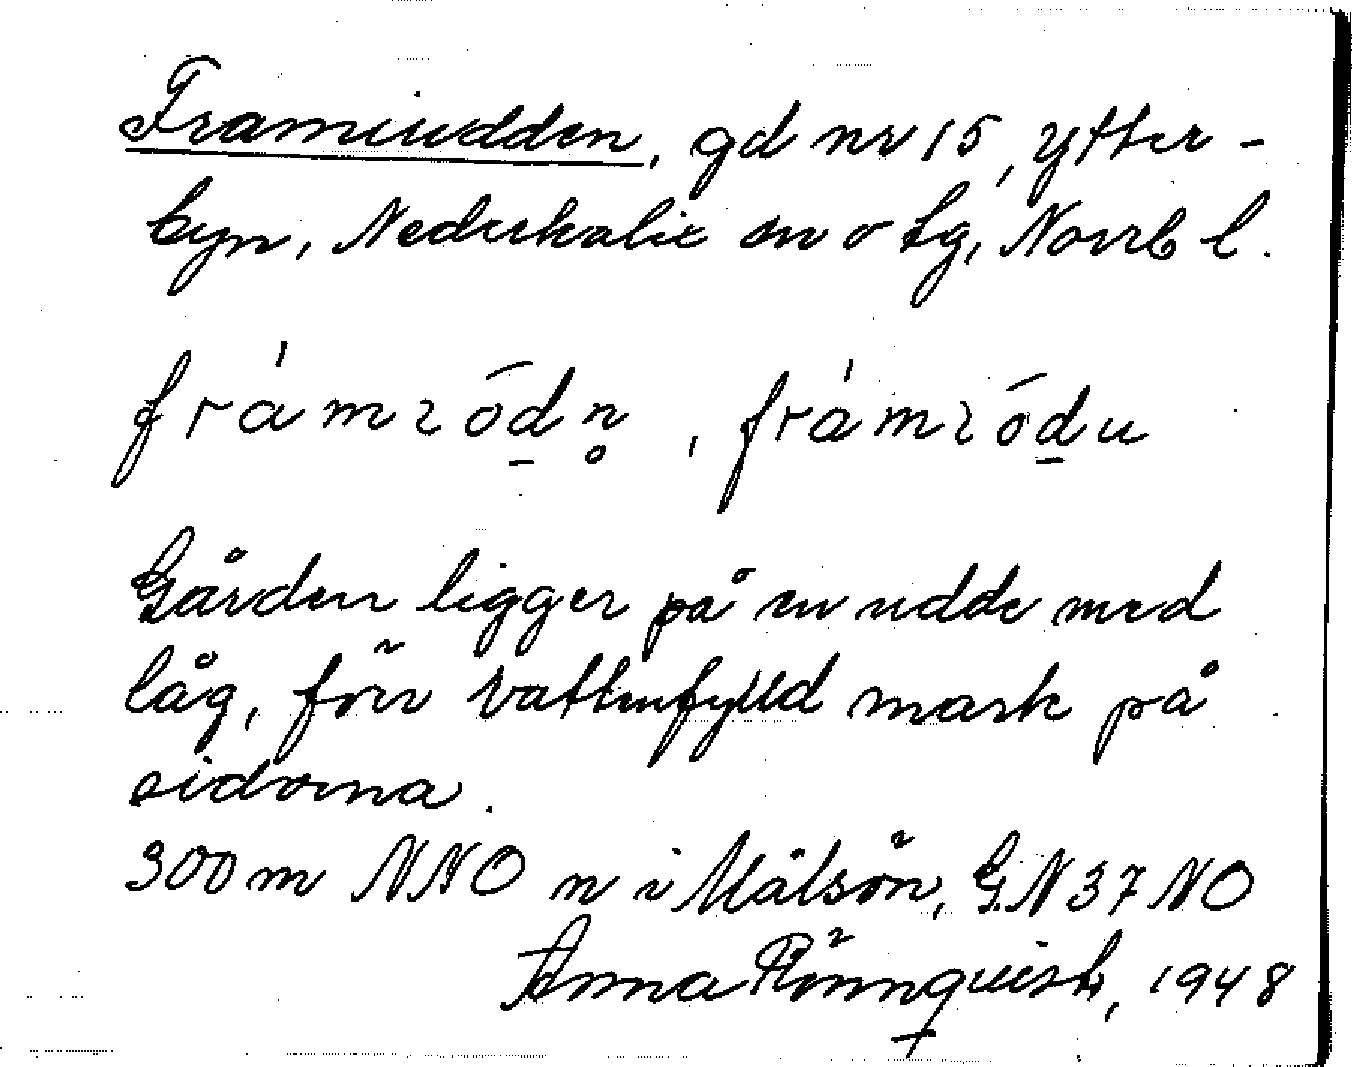 Framiudden, gd nr 15, Ytter-
byn, Nederkalix sn o tg, Norrb l.
frámıṓd̲n̥, frámıṓd̲u
Gården ligger på en udde med
låg, förr vattenfylld mark på
sidorna.
300 m NNO n i Målsön, G.N 37 NO
Anna Rönnqvist, 1948